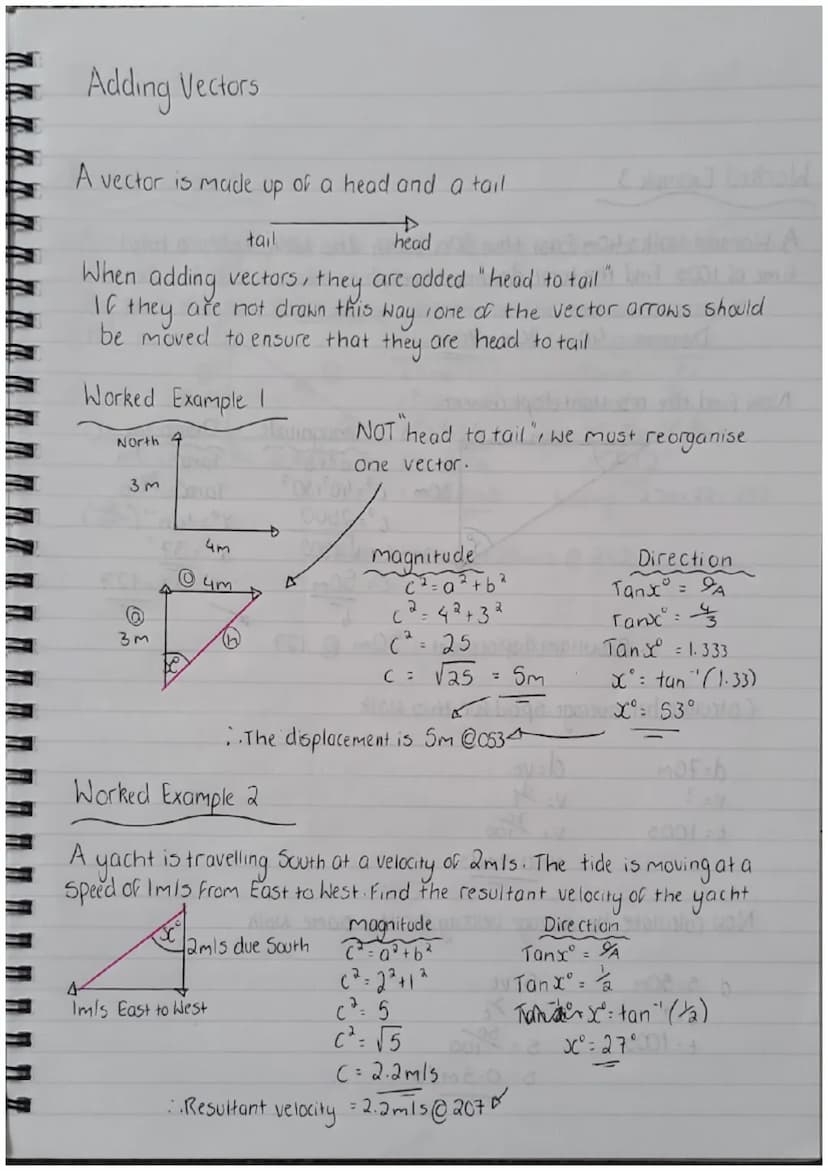 Adding Vectors
A vector is made up of a head and a tail
tail head
When adding vectors, they are added "head to tail"
If they are not drawn this way, one of the vector arrows should
be moved to ensure that they are head to tail
Worked Example 1
NOT "head to tail", we must reorganise
one vector.
North
3m
4m
O 4m
a
3m
h
x°
magnitude
c² = a² + b²
c² = 4² + 3²
c² = 25
c = √25 = 5m
Direction
Tanx° = O/A
Tanx° = 4/3
Tan x° = 1.333
x° = tan⁻¹ (1.33)
x° = 53°
∴ The displacement is 5m @ 053
Worked Example 2
A yacht is travelling South at a velocity of 2m/s. The tide is moving at a
speed of 1m/s from East to West. Find the resultant velocity of the yacht
x°
2m/s due South
1m/s East to West
magnitude
c² = a² + b²
c² = 2² + 1²
c² = 5
c² = √5
c = 2.2m/s
Direction
Tanx° = O/A
Tan x° = 1/2
x° = tan⁻¹ (1/2)
x° = 27°
∴ Resultant velocity = 2.2m/s @ 207